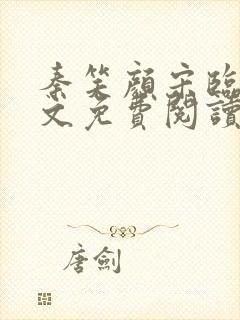 秦笑顏宋臨
文免費閱讀
唐劍